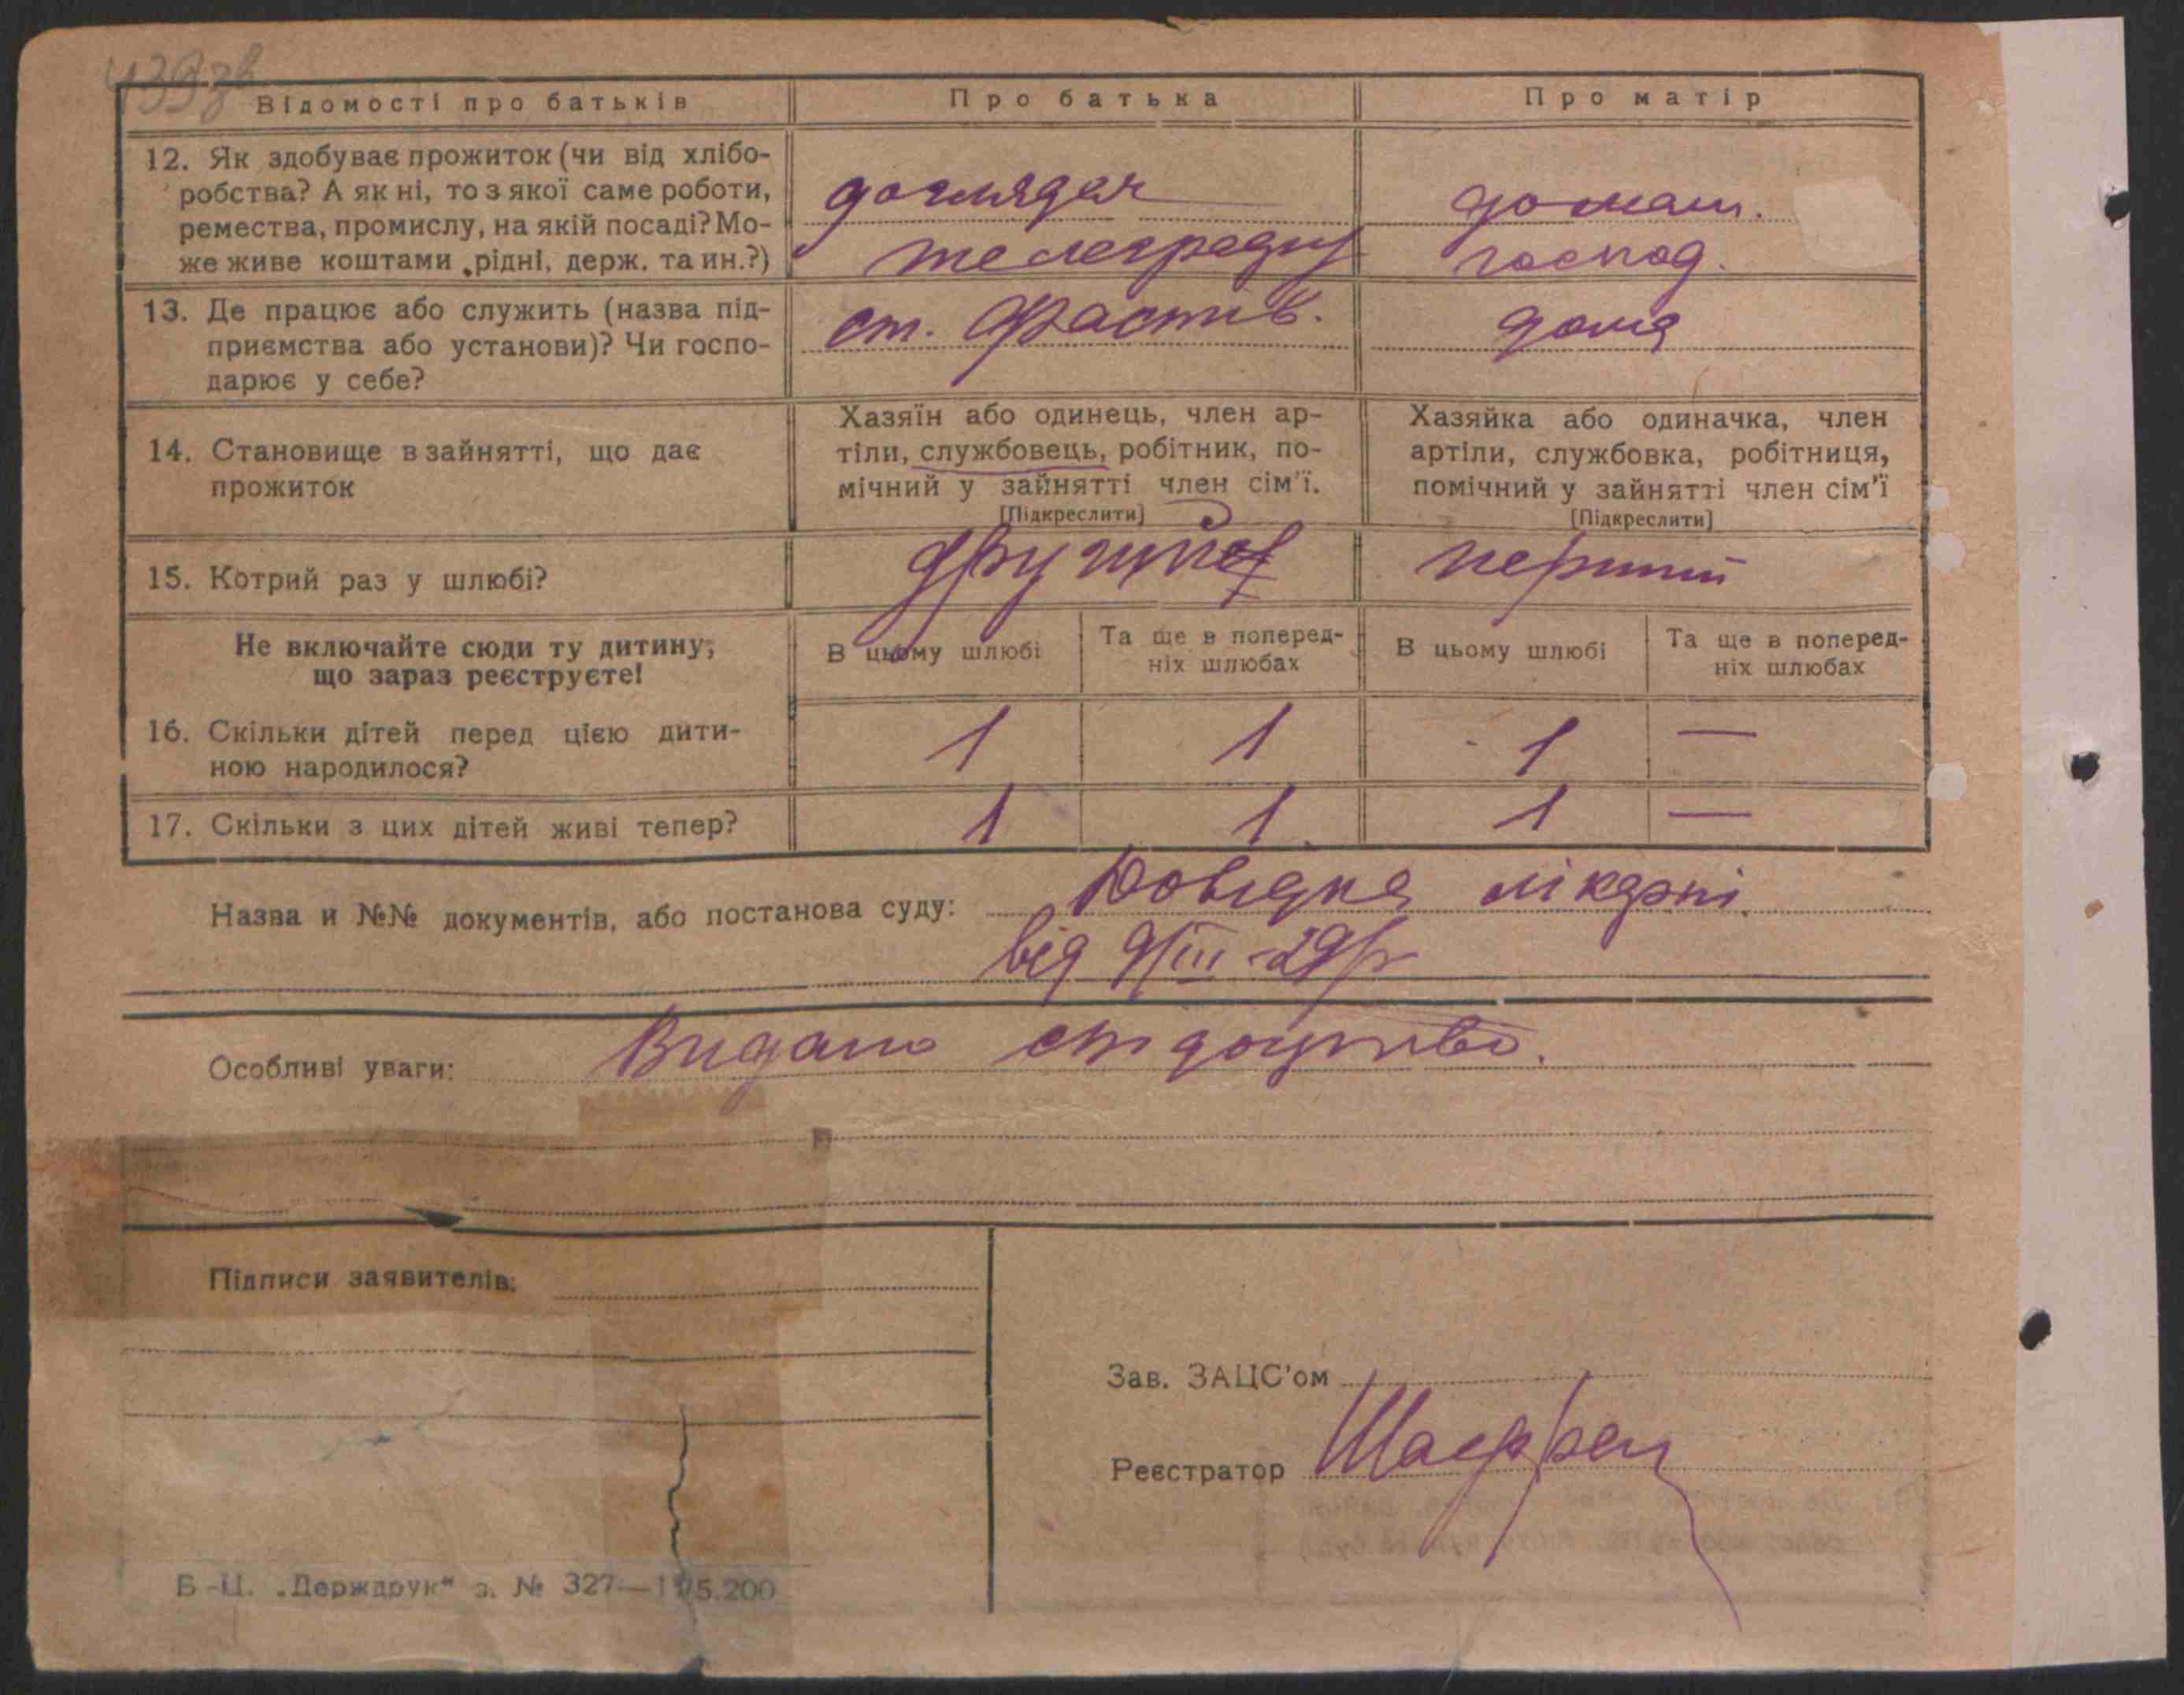 439 зв
Відомості про батьків
Про батька
Про матір
12. Як здобуває прожиток (чи від хлібо-
робства? А як ні, то з якої саме роботи,
ремества, промислу, на якій посаді? Мо-
же живе коштами рідні, держ. та ин.?)
доглядач
телеграфу
домаш.
господ.
13. Де працює або служить (назва під-
приємства або установи)? Чи госпо-
дарює у себе?
ст. Фастів.
дома
14. Становище в зайнятті, що дає
прожиток
Хазяїн або одинець, член ар-
тіли, службовець, робітник, по-
мічний у зайнятті член сім'ї.
[Підкреслити]
Хазяйка або одиначка, член
артіли, службовка, робітниця,
помічний у зайнятті член сім'ї
[Підкреслити]
15. Котрий раз у шлюбі?
другий
перший
Не включайте сюди ту дитину,
що зараз реєструєте!
В цьому шлюбі
Та ще в поперед-
ніх шлюбах
В цьому шлюбі
Та ще в поперед-
ніх шлюбах
16. Скільки дітей перед цією дити-
ною народилося?
1 1 1 —
17. Скільки з цих дітей живі тепер?
1 1 1 —
Назва и №№ документів, або постанова суду: Довідка лікарні
від 9/III-29 р
Особливі уваги: Видано
Підписи заявителів:
Зав. ЗАЦС'ом
Реєстратор
Б-Ц. „Держдрук" з. № 327—115.200